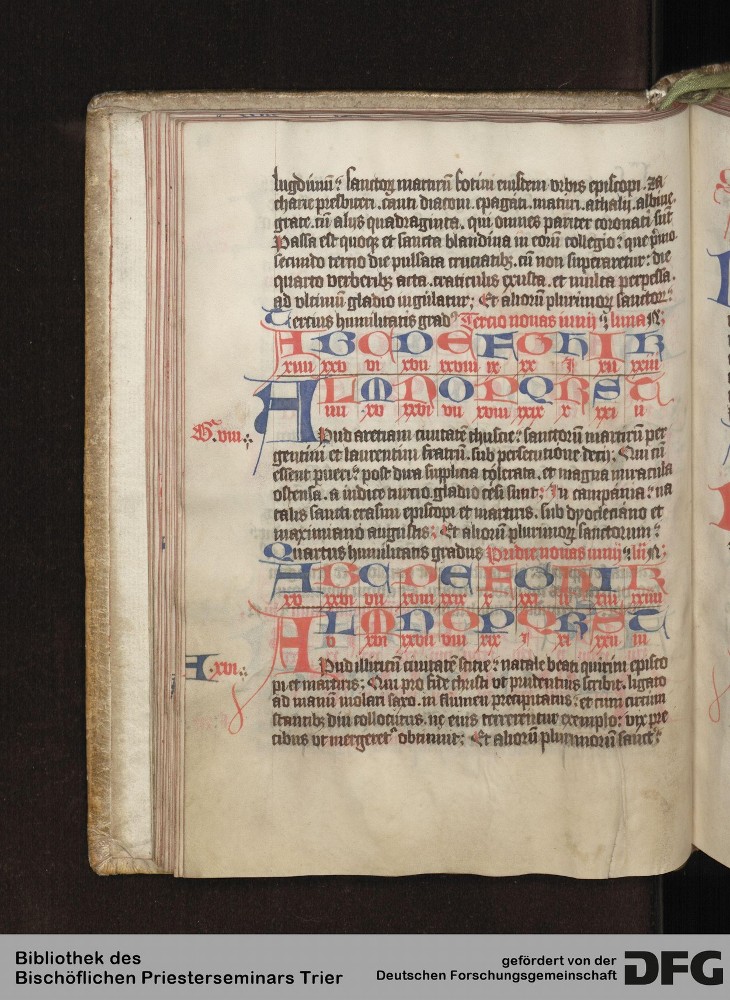 lugdunū: sanctoꝝ martirū fotini eiusdem vrbis episcopi. za
charie presbiteri. sancti diaconi. epagati. maturi. athalij. albine.
grate. cū alijs quadraginta. qui omnes pariter coronati sūt
Passa est quoqꝫ et sancta blandina in eorū collegio: que pͥmo
secundo tercio die pulsata cruciatibꝫ. cū non superaretur: die
quarto verberibꝫ acta. craticulis exusta. et multa perpessa.
ad vltimū gladio iugulatur; Et aliorū plurimoꝝ sanctor:
Tercius humilitatis gradꝰ Tercio nonas iunij luna
A B C D E F G H I K
xiiii xxv vi xvii xxviii ix xx i xii xxiii
L M N O P Q R S T
iiii xv xxvi vii xviii xxix x xxi ii
G. viii.
APud aretiam ciuitatē thuscie: sanctorū martirū per
gentini et laurentini fratrū. sub persecutione decij; Qui cū
essent pueri: post dira supplicia tolerata. et magna miracula
ostensa. a iudice turcio. gladio cesi sunt; In campania: na
talis sancti erasmi episcopi et martiris. sub dyocleciano et
maximiano augustis; Et aliorū plurimoꝝ sanctorum:
Quartus humilitatis gradus Pridie nonas iunij
A B C D E F G H I K
xv xxvi vii xviii xxix x xxi ii xiii xxiiii
L M N O P Q R S T
v xvi xxvii viii xix i xi xxii iii
A. xvi.
APud illiricū ciuitatē scicie: natale beati quirini episco
pi et martiris; Qui pro fide christi vt prudentius scribit. ligato
ad manū molari saxo. in flumen precipitatus: et cum circum
stantibꝫ diu collocutus. ne eius terrerentur exemplo: vix pre
cibus vt mergeretᷣ obtinuit; Et aliorū plurimorū sanct:
Bibliothek des
Bischöflichen Priesterseminars Trier
gefördert von der
Deutschen Forschungsgemeinschaft
DFG